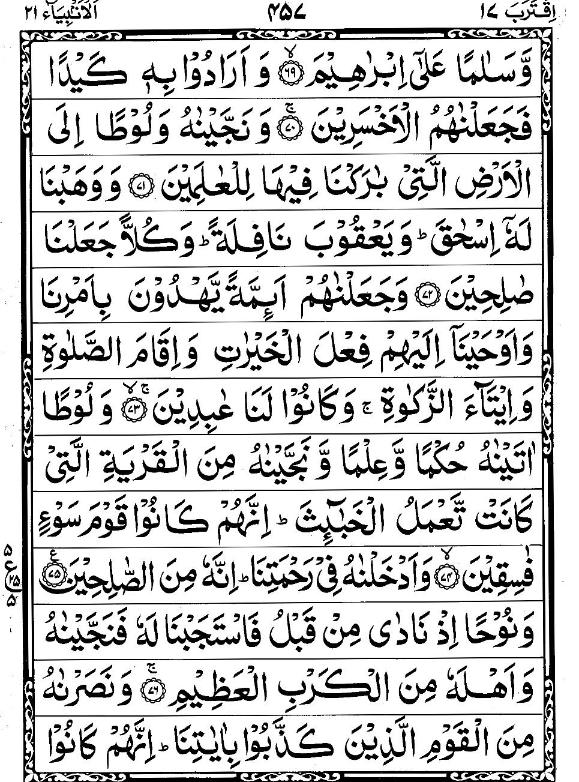 اِقْتَرَبَ ١٧ ۴۵۷ اَلْاَنْۢبِيَآء ٢١
وَّسَلٰمًا عَلٰٓى اِبْرٰهِيْمَ ۙ‏﴿۶۹﴾ وَ اَرَادُوْا بِهٖ كَيْدًا
فَجَعَلْنٰهُمُ الْاَخْسَرِيْنَ ۚ‏﴿۷۰﴾ وَ نَجَّيْنٰهُ وَ لُوْطًا اِلَى
الْاَرْضِ الَّتِيْ بٰرَكْنَا فِيْهَا لِلْعٰلَمِيْنَ ﴿۷۱﴾ وَ وَهَبْنَا
لَهٗۤ اِسْحٰقَ ؕ وَ يَعْقُوْبَ نَافِلَةً ؕ وَ كُلًّا جَعَلْنَا
صٰلِحِيْنَ ﴿۷۲﴾ وَ جَعَلْنٰهُمْ اَىِٕمَّةً يَّهْدُوْنَ بِاَمْرِنَا
وَ اَوْحَيْنَاۤ اِلَيْهِمْ فِعْلَ الْخَيْرٰتِ وَ اِقَامَ الصَّلٰوةِ
وَ اِيْتَآءَ الزَّكٰوةِ ۚ وَ كَانُوْا لَنَا عٰبِدِيْنَ ۚۙ‏﴿۷۳﴾ وَ لُوْطًا
اٰتَيْنٰهُ حُكْمًا وَّ عِلْمًا وَّ نَجَّيْنٰهُ مِنَ الْقَرْيَةِ الَّتِيْ
كَانَتْ تَّعْمَلُ الْخَبٰٓىِٕثَ ؕ اِنَّهُمْ كَانُوْا قَوْمَ سَوْءٍ
فٰسِقِيْنَ ۙ‏﴿۷۴﴾ وَ اَدْخَلْنٰهُ فِيْ رَحْمَتِنَا ؕ اِنَّهٗ مِنَ الصّٰلِحِيْنَ ﴿۷۵﴾ ع
۵ ٢۵ ۵
وَ نُوْحًا اِذْ نَادٰى مِنْ قَبْلُ فَاسْتَجَبْنَا لَهٗ فَنَجَّيْنٰهُ
وَ اَهْلَهٗ مِنَ الْكَرْبِ الْعَظِيْمِ ۚ‏﴿۷۶﴾ وَ نَصَرْنٰهُ
مِنَ الْقَوْمِ الَّذِيْنَ كَذَّبُوْا بِاٰيٰتِنَا ؕ اِنَّهُمْ كَانُوْا